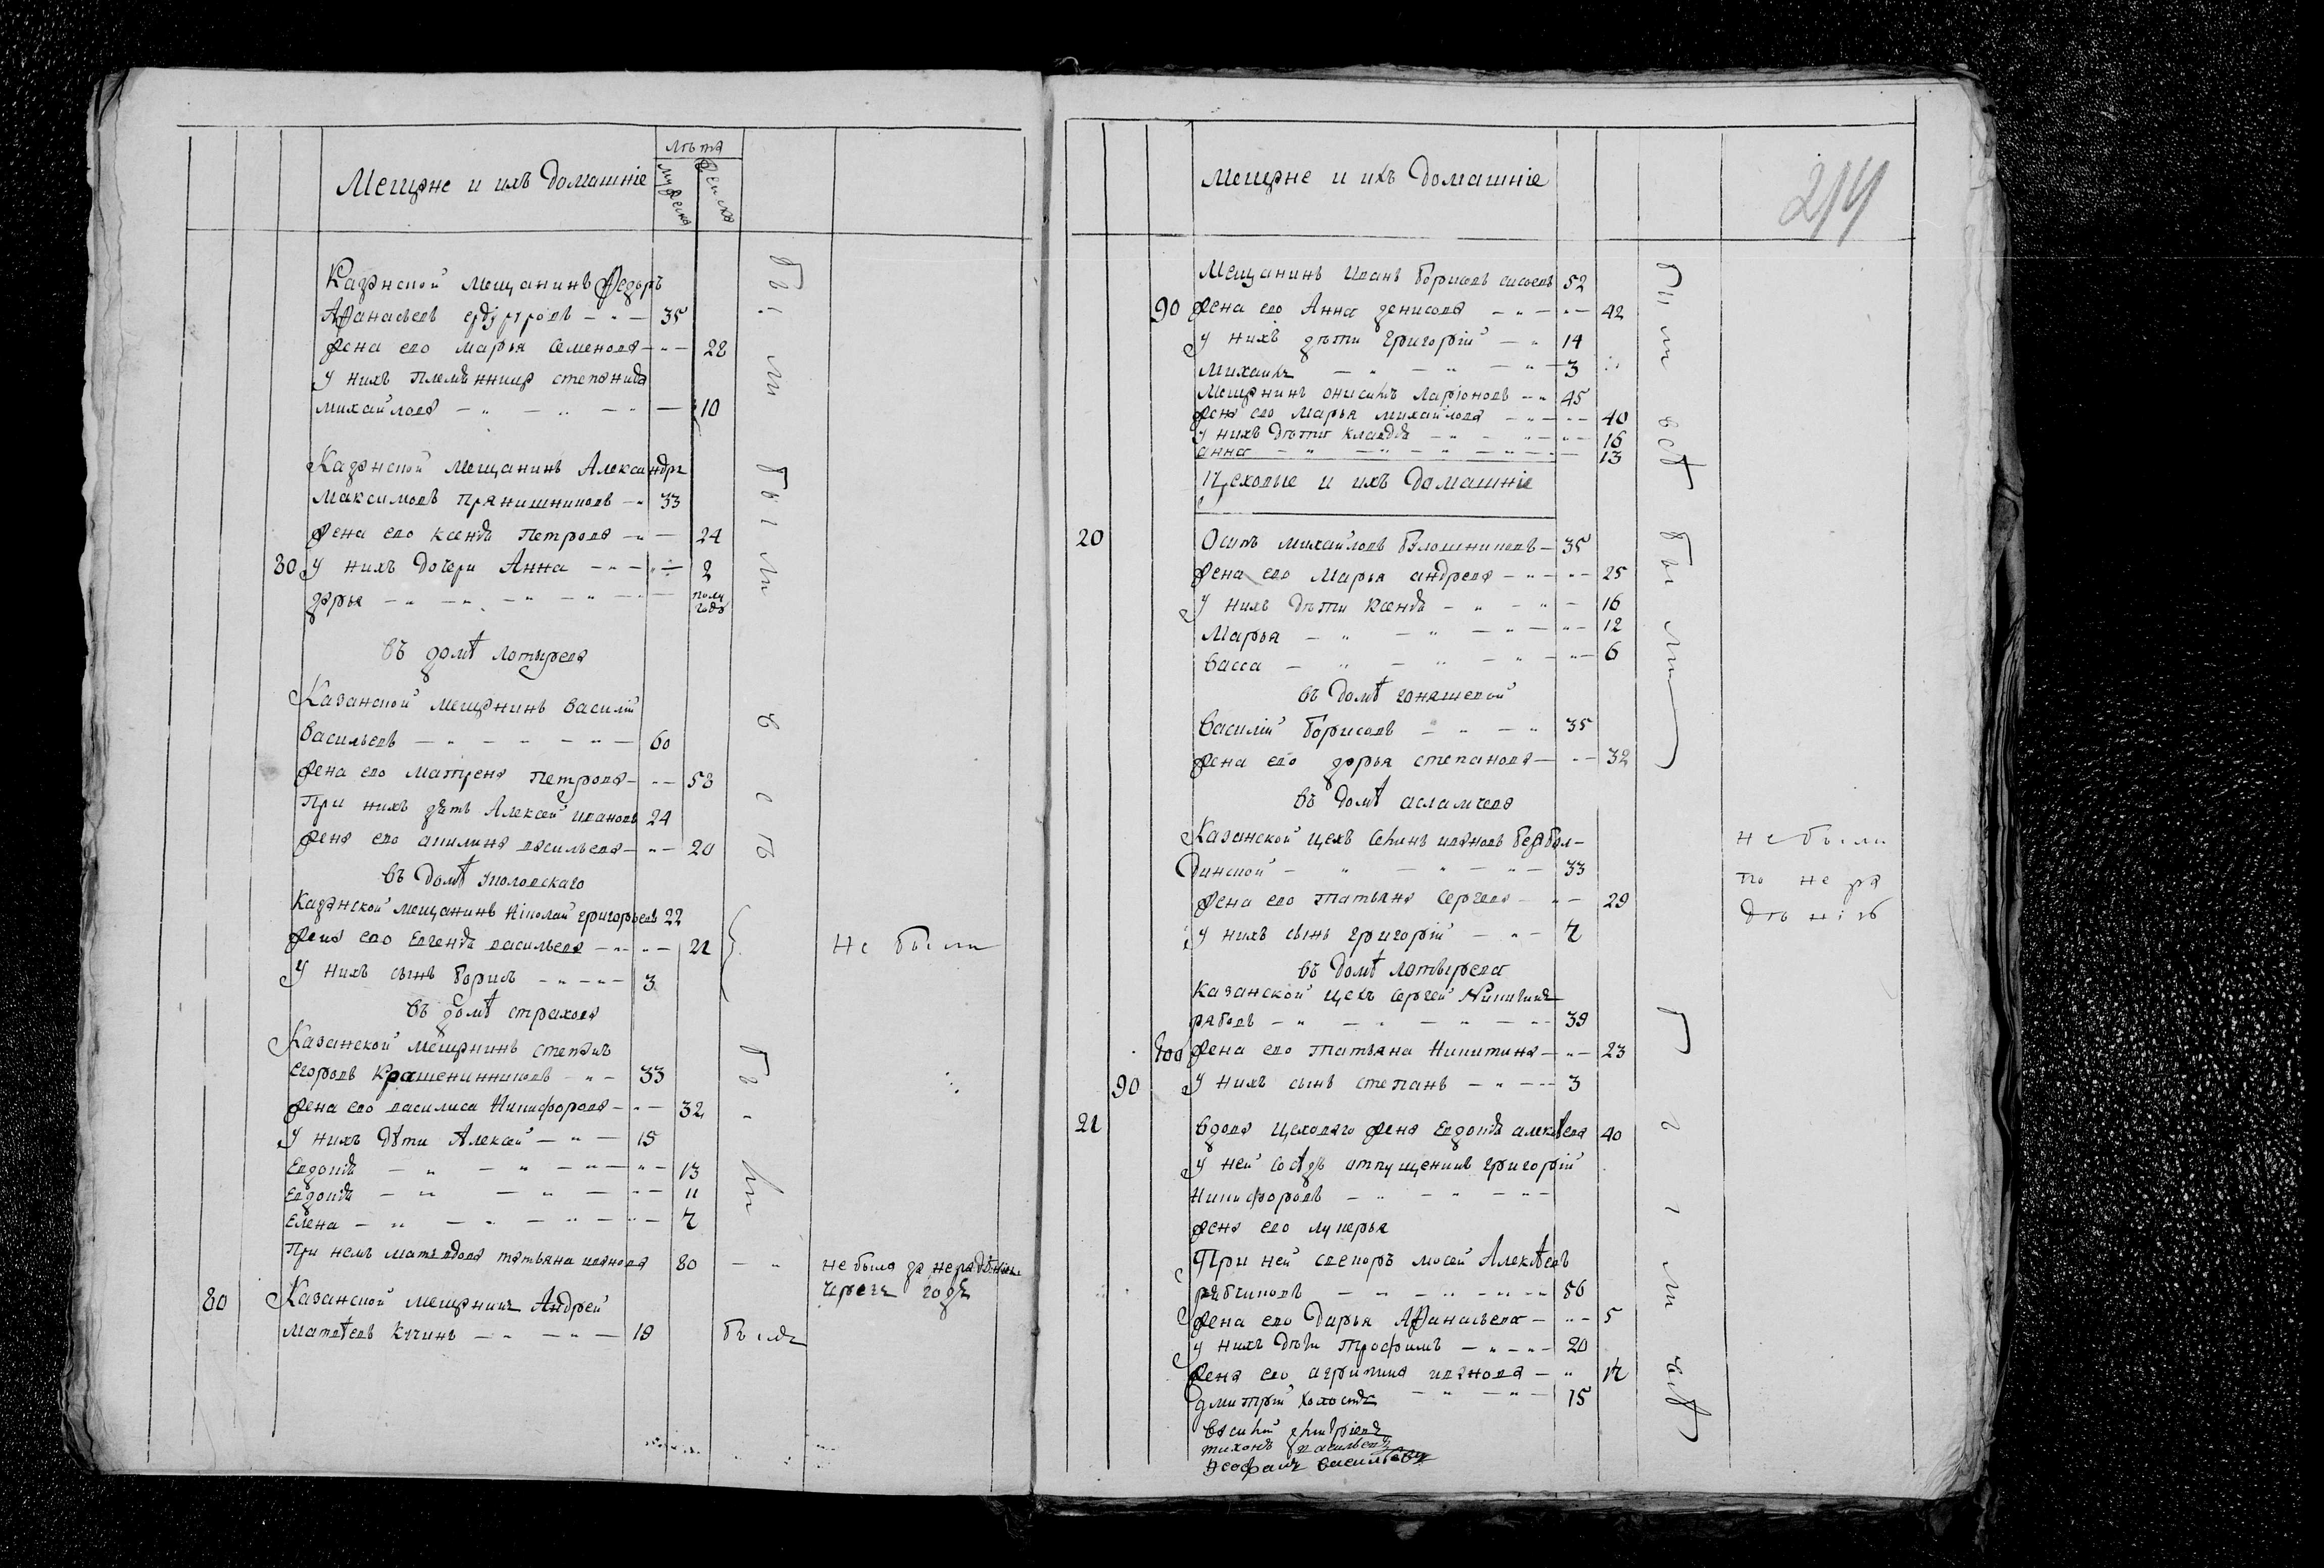 лѣта
Мещане и ихъ домашніе
мужеска
женска
Казанской мещанинъ Федоръ
Афанасьевъ — 35
жена его марья семенова — 28
у нихъ племѣнница степанида
михайлова — 10
Казанской мещанинъ Александръ
Максимовъ прянишниковъ — 33
жена его ксенья петрова — 24
30 у нихъ дочери Анна — 2
дарья — полу года
въ домѣ лотырева
Казанской мещанинъ василій
васильевъ — 60
жена его матрена петрова — 53
При нихъ зять Алексей ивановъ 24
жена его акилина васильева — 20
въ домѣ
Казанской мещанинъ Николай григорьевъ 22
жена его Евгенья васильева — 21
У нихъ сынъ борисъ — 3
не были
въ домѣ страхова
Казанской мещанинъ степанъ
егоровъ Крашенинниковъ — 33
жена его василиса Никифорова — 32
у нихъ дѣти Алексей — 15
Евдокья — 13
Евдокья — 11
Елена — 7
При немъ мать вдова татьяна иванова 80
не была за нерадѣніемъ
чрезъ годъ
80 Казанской мещанинъ Андрей
матвѣевъ — 19 былъ
были
были
есть
были
214
Мещане и ихъ домашніе
Мещанинъ Иванъ борисовъ 52
90 жена его Анна денисова — 42
у нихъ дѣти григорій — 14
Михаилъ — 3
Мещанинъ онисимъ ларіоновъ — 45
жена его марья михайлова — 40
у нихъ дѣти клавдія — 16
анна — 13
Цеховые и ихъ домашніе
20 Осипъ михайловъ — 35
жена его марья андреева — 25
у нихъ дѣти ксенья — 16
Марья — 12
васса — 6
въ домѣ
василій борисовъ — 35
жена его дарья степанова — 32
въ домѣ асламчева
Казанской цехъ ивановъ
— 33
жена его татьяна сергеева — 29
у нихъ сынъ григорій — 7
не были
по нера
дѣнію
въ домѣ лотырева
казанской цехъ сергей Никитинъ
рябовъ — 39
400 жена его татьяна Никитина — 23
90 у нихъ сынъ степанъ — 3
21 вдова цеховаго жена Евдокья алексѣева 40
у ней сосѣдъ отпущенникъ григорій
Никифоровъ —
жена его лукерья
При ней свекоръ мосей Алексѣевъ
рябчиковъ — 56
жена его Дарья Афанасьева — 5
у нихъ дѣти трофимъ — 20
жена его агрипина иванова — 17
дмитрій холостъ — 15
тихонъ васильевъ
Феофанъ васильевъ
были всѣ
были
были всѣ